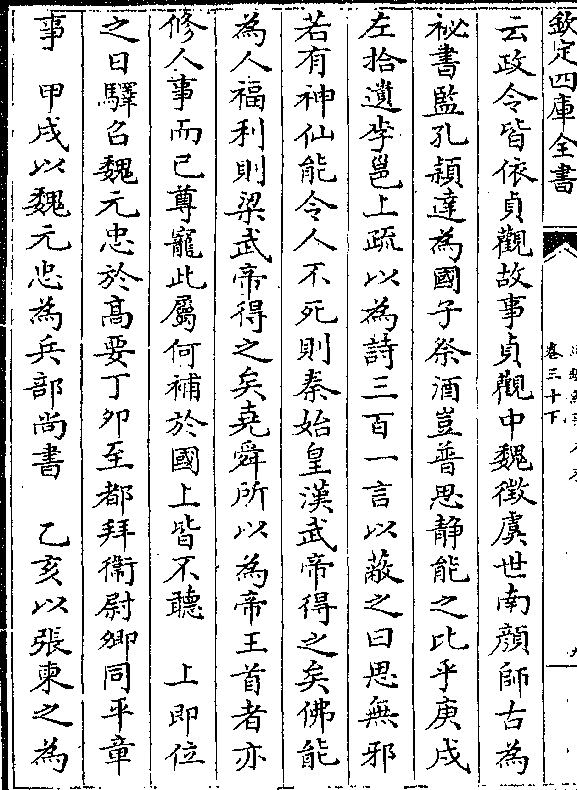 欽定四庫全書
卷三十下
云政令皆依貞觀故事貞觀中魏徵虞世南顏師古為
祕書監孔穎達為國子祭酒豈普思靜能之比乎庚戌
左拾遺李邕上疏以為詩三百一言以蔽之曰思無邪
若有神仙能令人不死則秦始皇漢武帝得之矣佛能
為人福利則梁武帝得之矣堯舜所以為帝王首者亦
修人事而已尊寵此屬何補於國上皆不聽　上即位
之日驛召魏元忠於高要丁卯至都拜衛尉卿同平章
事　甲戌以魏元忠為兵部尚書　乙亥以張柬之為